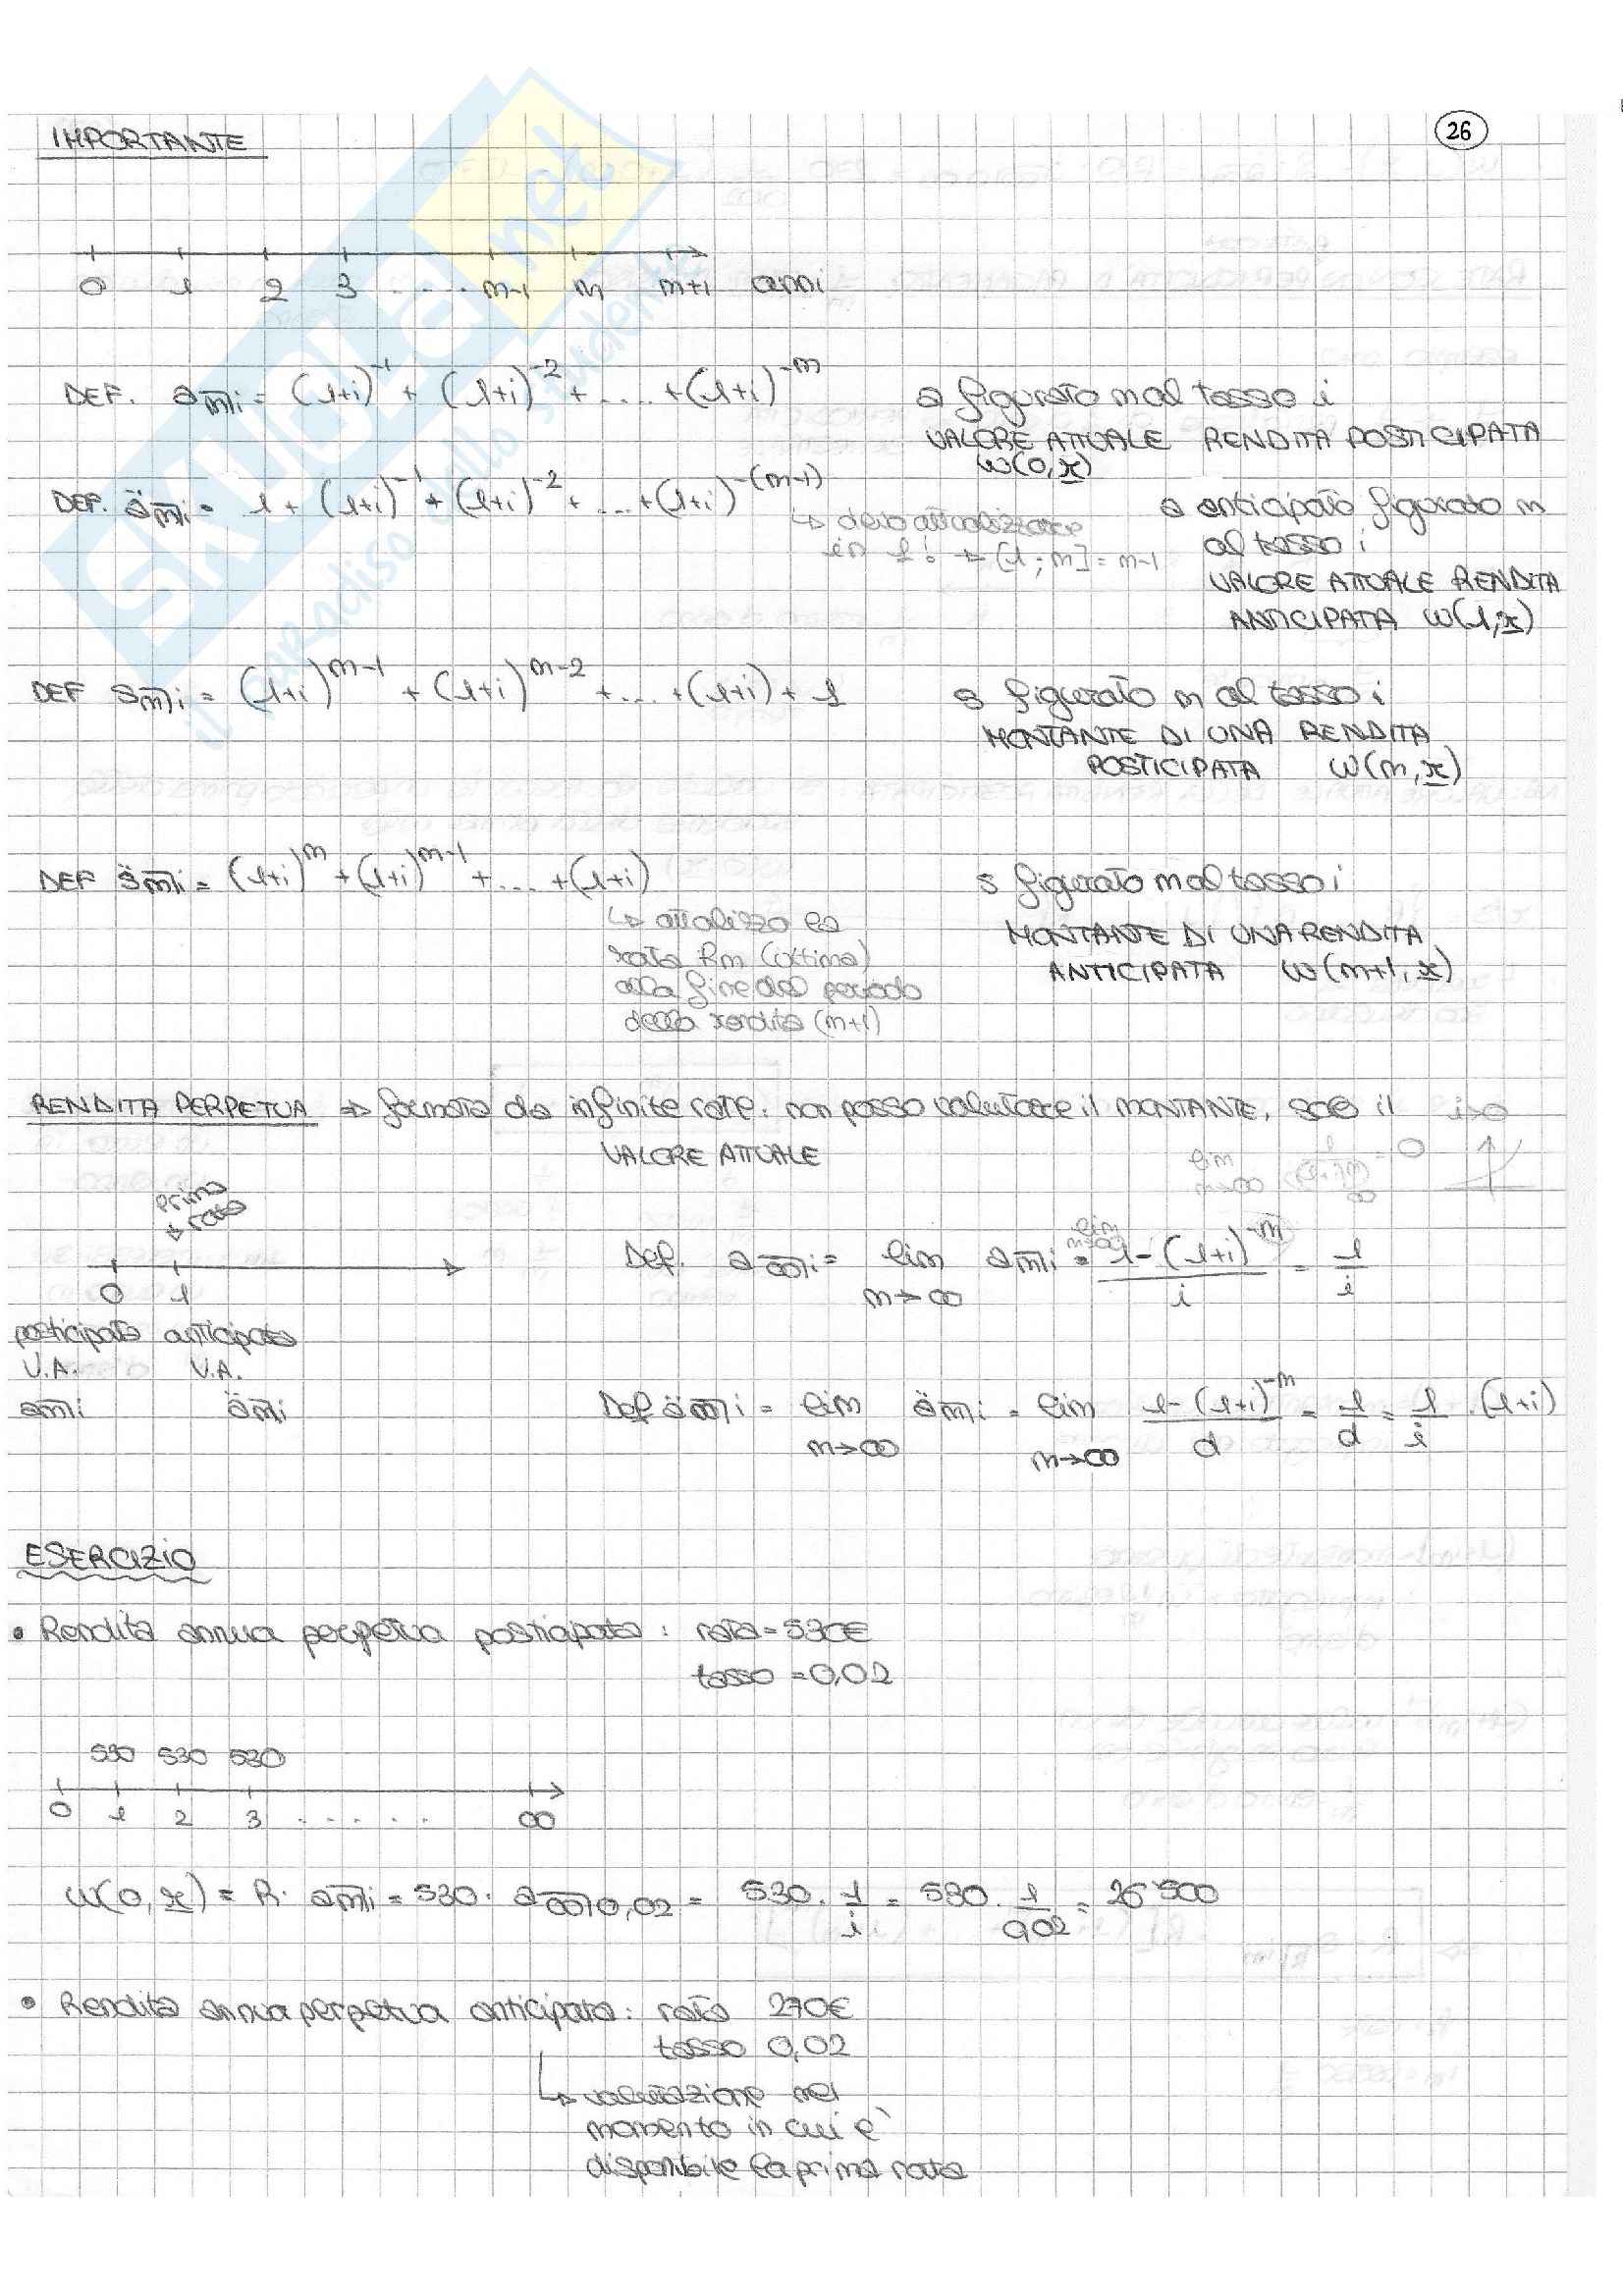 IMPORTANTE
26
0 1 2 3 ..... m-1 m m+1 anni
DEF. a̅m̅|i = (1+i)^-1 + (1+i)^-2 + .... + (1+i)^-m
a figurato m al tasso i
VALORE ATTUALE RENDITA POSTICIPATA
W(0,x)
DEF. äm|i = 1 + (1+i)^-1 + (1+i)^-2 + ... + (1+i)^-(m-1)
↳ devo attualizzare
in 1! → [1;m] = m-1
a anticipato figurato m
al tasso i
VALORE ATTUALE RENDITA
ANTICIPATA W(1,x)
DEF sm|i = (1+i)^m-1 + (1+i)^m-2 + ... + (1+i) + 1
s figurato m al tasso i
MONTANTE DI UNA RENDITA
POSTICIPATA W(m,x)
DEF s̈m|i = (1+i)^m + (1+i)^m-1 + ... + (1+i)
↳ attualizzo la
rata Rm (ultima)
alla fine del periodo
della rendita (m+1)
s figurato m al tasso i
MONTANTE DI UNA RENDITA
ANTICIPATA W(m+1,x)
RENDITA PERPETUA ⇒ formata da infinite rate. non posso valutare il MONTANTE, solo il i>0
VALORE ATTUALE
lim m→∞ 1/(1+i)^m = 0
∞
prima
↓ rata
0 1
posticipata anticipata
V.A. V.A.
am|i äm|i
Def. a∞|i = lim m→∞ am|i = lim m→∞ 1-(1+i)^-m / i = 1/i
Def ä∞|i = lim m→∞ äm|i = lim m→∞ 1-(1+i)^-m / d = 1/d = 1/i · (1+i)
ESERCIZIO
• Rendita annua perpetua posticipata: rata = 530€
tasso = 0,02
530 530 530
0 1 2 3 ...... ∞
W(0,x) = R· am|i = 530· a∞|0,02 = 530· 1/i = 530· 1/0,02 = 26'500
• Rendita annua perpetua anticipata: rata 270€
tasso 0,02
↳ valutazione nel
momento in cui è
disponibile la prima rata
SKUOLA.net
il paradiso dello studente